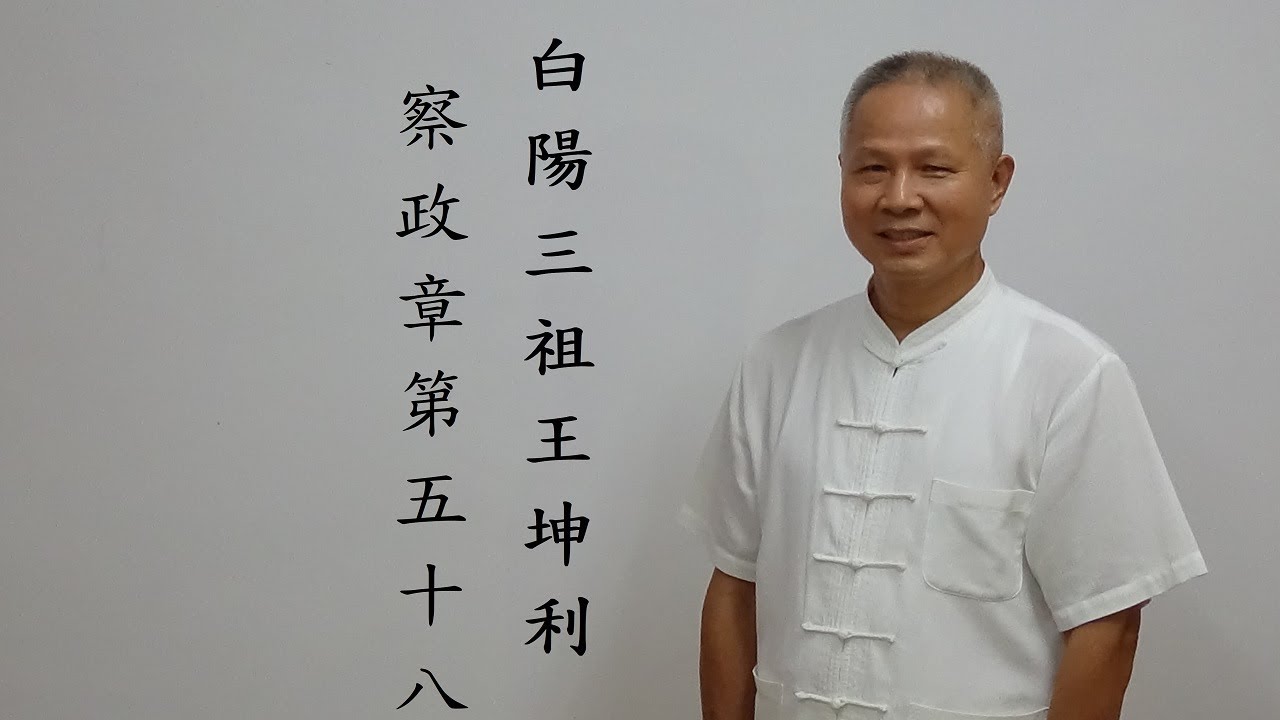 白陽三祖王坤利
察政章第五十八